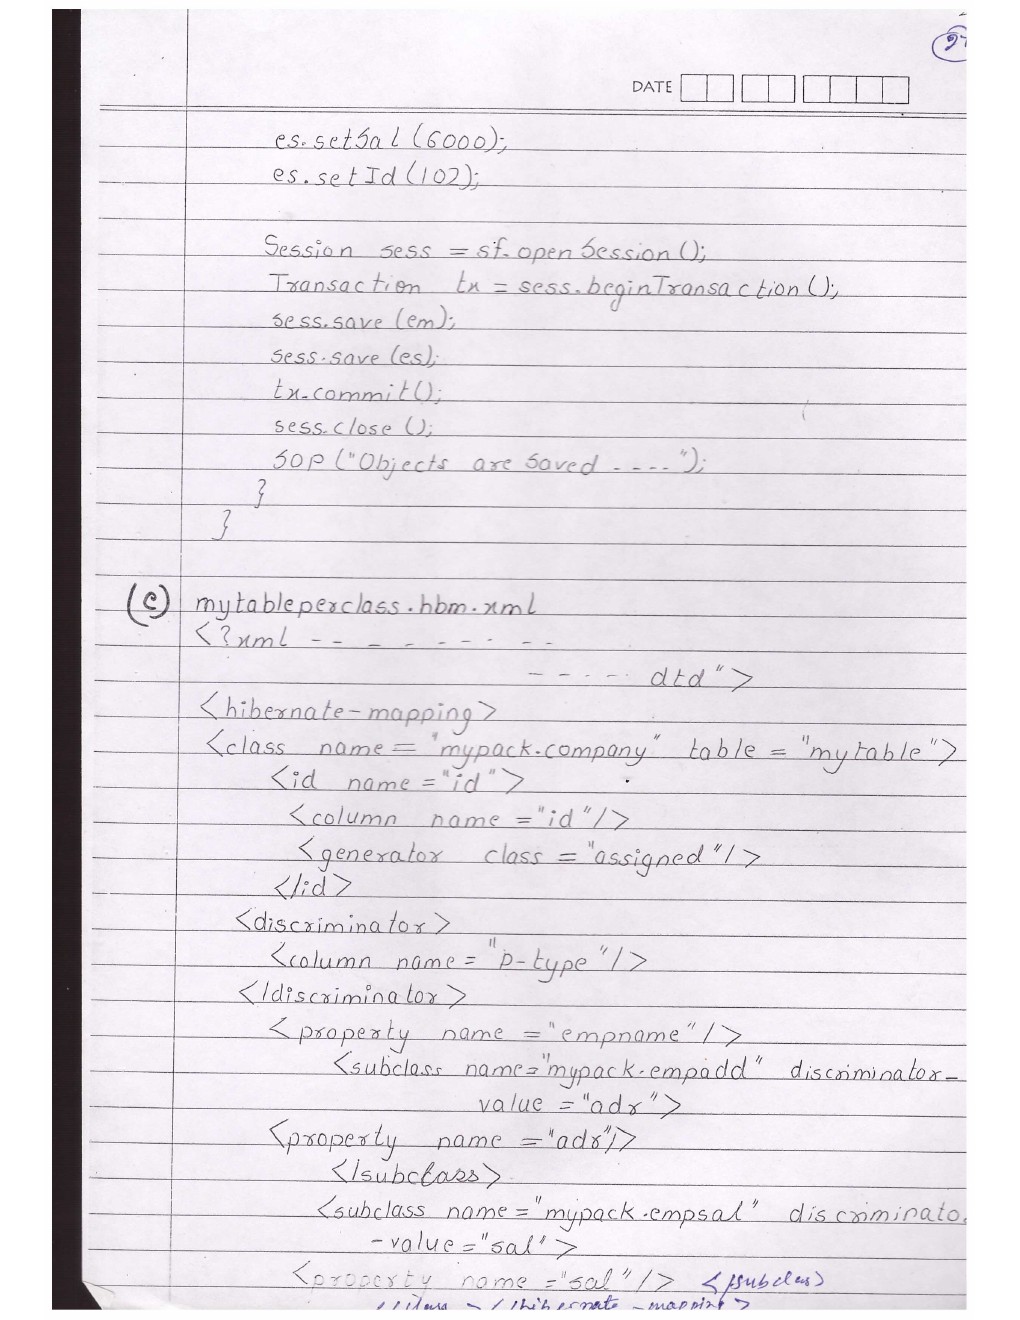 DATE
es.setSal(6000);
es.setId(102);
Session sess = sf.openSession();
Transaction tx = sess.beginTransaction();
sess.save(em);
sess.save(es);
tx.commit();
sess.close();
SOP("Objects are saved ----");
}
}
(c) mytableperclass.hbm.xml
<?xml -- - - - - - --
- - - - - dtd">
<hibernate-mapping>
<class name="mypack.company" table="mytable">
<id name="id">
<column name="id"/>
<generator class="assigned"/>
</id>
<discriminator>
<column name="D-type"/>
</discriminator>
<property name="empname"/>
<subclass name="mypack.empadd" discriminator-
value="adr">
<property name="adr"/>
</subclass>
<subclass name="mypack.empsal" discriminato
-value="sal">
<property name="sal"/> </subclass>
</class> </hibernate-mapping>